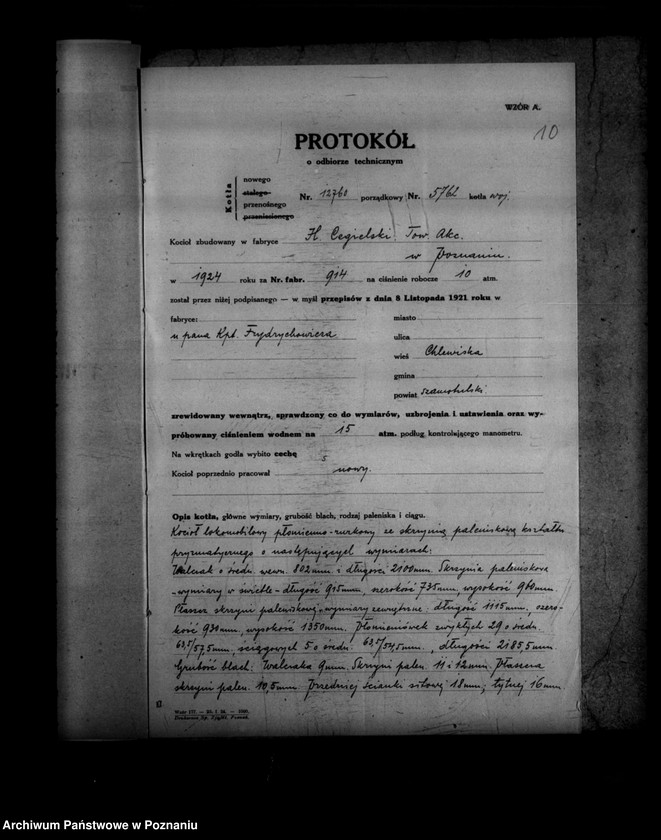 WZÓR A.
10
PROTOKÓŁ
o odbiorze technicznym
Kotła
nowego
stałego
przenośnego
przeniesionego
Nr. 12760 porządkowy Nr. 5762 kotła woj.
Kocioł zbudowany w fabryce H. Cegielski Tow. Akc.
w Poznaniu.
w 1924 roku za Nr. fabr. 914 na ciśnienie robocze 10 atm.
został przez niżej podpisanego — w myśl przepisów z dnia 8 Listopada 1921 roku w
fabryce:
u pana Kpt. Frydrychowicza
miasto
ulica
wieś Chlewiska
gmina
powiat szamotulski.
zrewidowany wewnątrz, sprawdzony co do wymiarów, uzbrojenia i ustawienia oraz wy-
próbowany ciśnieniem wodnem na 15 atm. podług kontrolującego manometru.
Na wkrętkach godła wybito cechę 5
Kocioł poprzednio pracował nowy.
Opis kotła, główne wymiary, grubość blach, rodzaj paleniska i ciągu.
Kocioł lokomobilowy płomienno-rurkowy ze skrzynią paleniskową kształtu
pryzmatycznego o następujących wymiarach:
Walczak o średn. wewn. 802mm i długości 2100mm. Skrzynia paleniskowa
-wymiary w świetle - długość 915mm, szerokość 735mm, wysokość 960mm.
Płaszcz skrzyni paleniskowej, wymiary zewnętrzne: długość 1115mm, szero-
kość 930mm, wysokość 1350mm. Płomieniówek zwykłych 29 o średn.
63,5/57,5mm, ściągowych 5 o średn. 63,5/54,5mm, długości 2185,5mm
Grubość blach: Walczaka 9mm. Skrzyni palen. 11 i 12mm. Płaszcza
skrzyni palen. 10,5mm Przedniej ścianki sitowej 18mm, tylnej 16mm.
Wzór 177. — 25. I. 24. — 1000.
Drukarnia Sp. Zjedn. Poznań.
Archiwum Państwowe w Poznaniu